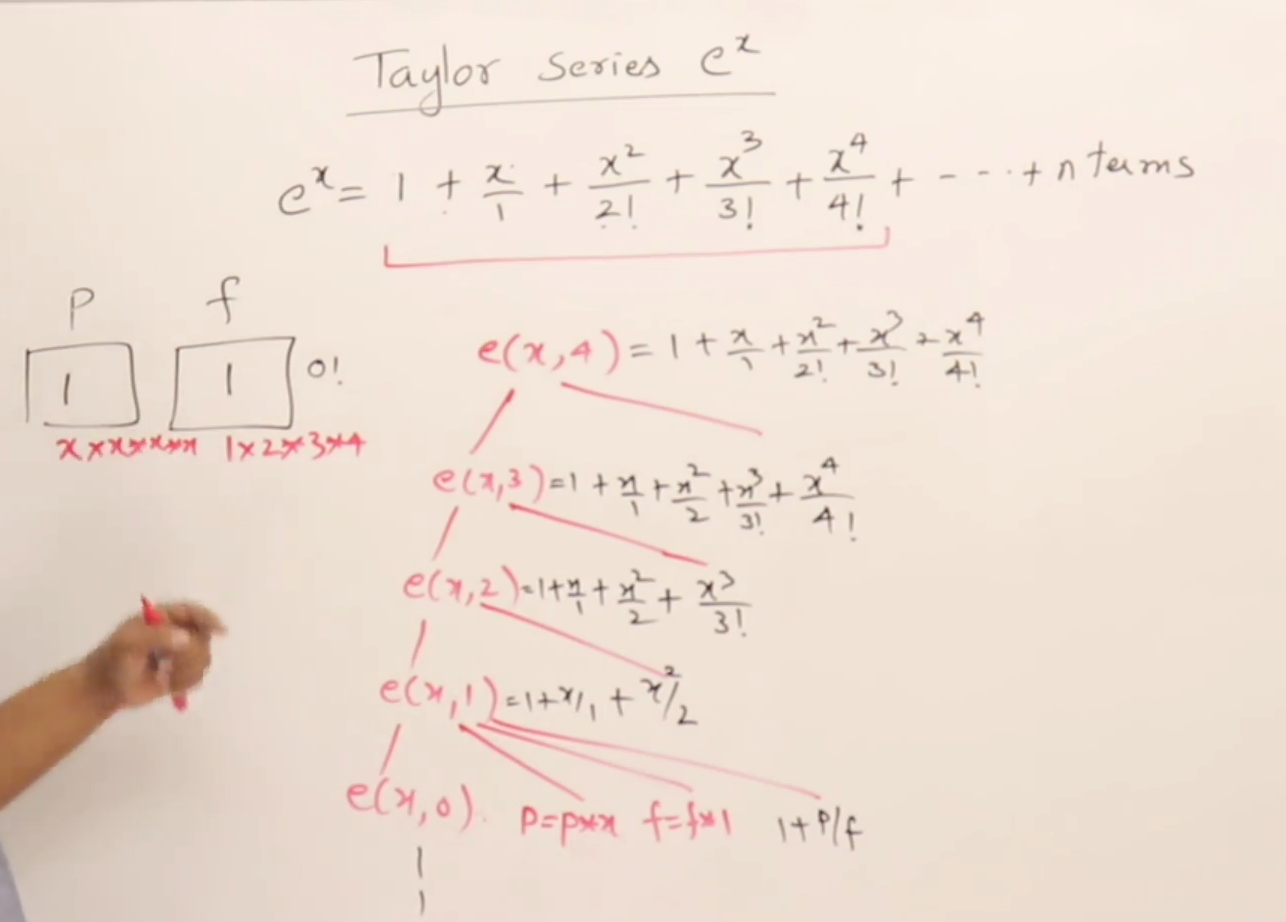 Taylor Series e^x
e^x = 1 + x/1 + x²/2! + x³/3! + x⁴/4! + - - - · · + n terms
P f
1 1 0!
x*x*x*x 1*2*3*4
e(x,4) = 1 + x/1 + x²/2! + x³/3! + x⁴/4!
e(x,3) = 1 + x/1 + x²/2 + x³/3! + x⁴/4!
e(x,2) = 1 + x/1 + x²/2 + x³/3!
e(x,1) = 1 + x/1 + x²/2
e(x,0). P=P*x f=f*1 1+P/f
1
1